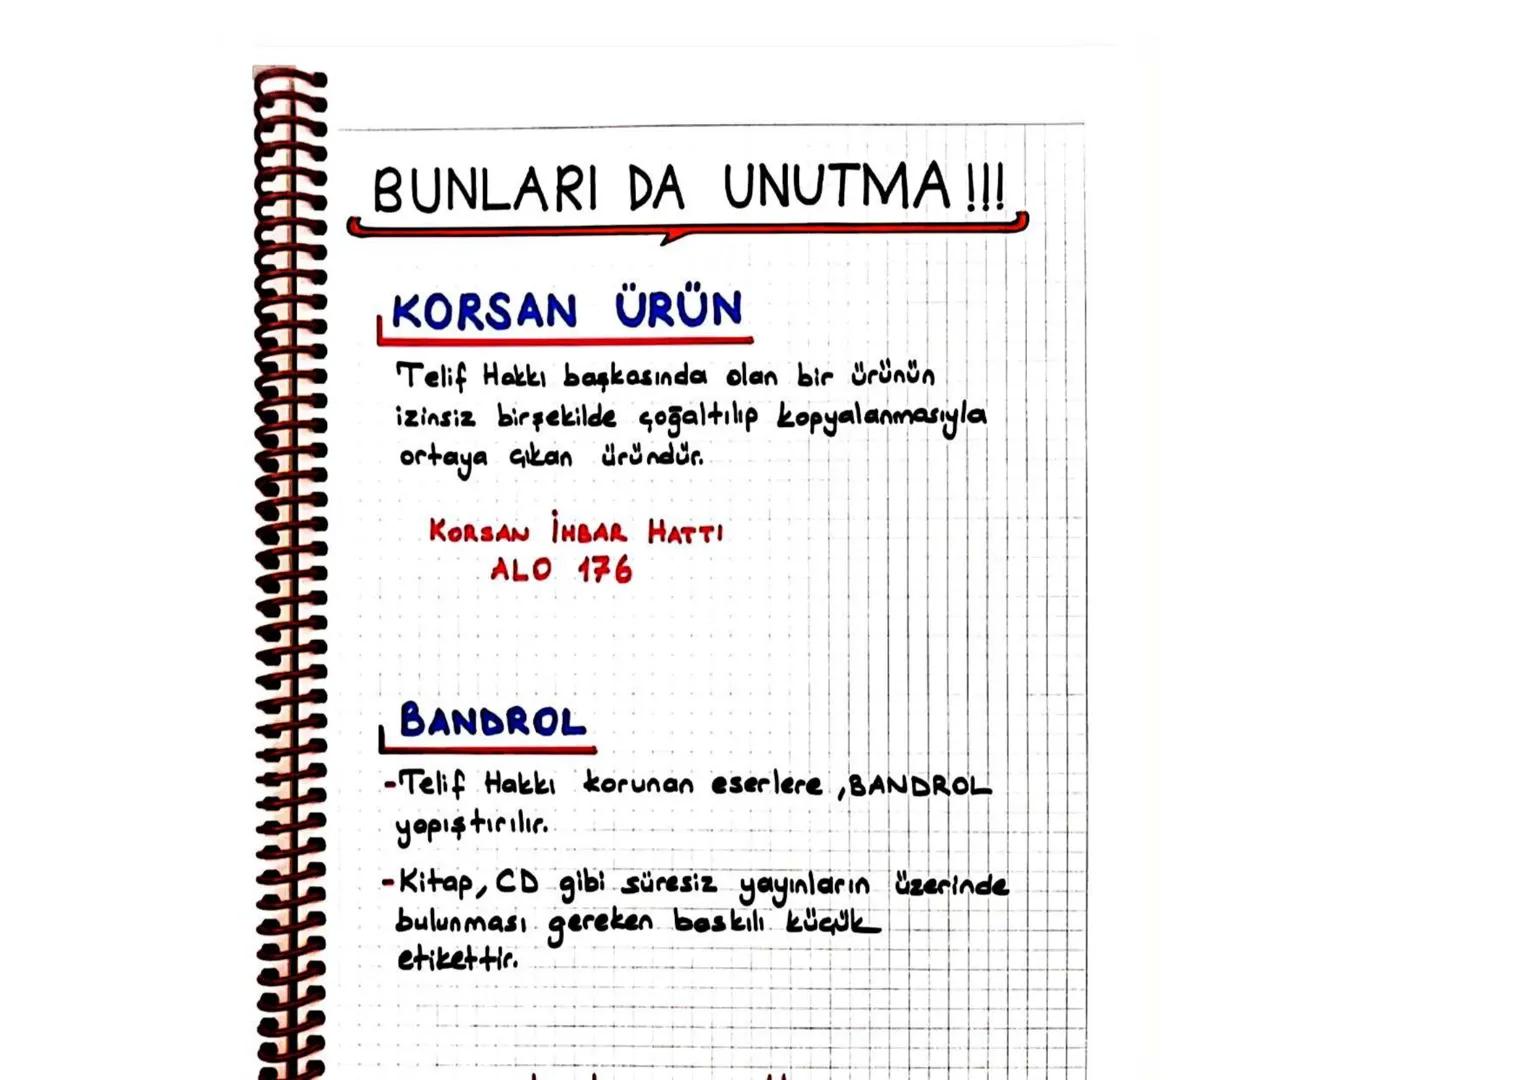 BUNLARI DA UNUTMA!!!
KORSAN ÜRÜN
Telif Hakkı başkasında olan bir ürünün
izinsiz birşekilde çoğaltılıp kopyalanmasıyla
ortaya çıkan üründür.
KORSAN İHBAR HATTI
ALO 176
BANDROL
-Telif Hakkı korunan eserlere, BANDROL
yapıştırılır.
-Kitap, CD gibi süresiz yayınların üzerinde
bulunması gereken baskılı küçük
etikettir.